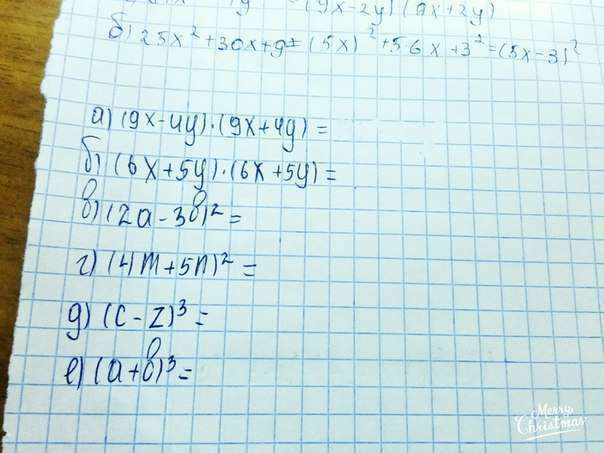 (9x-2y)(9x+2y)
б) 25x²+30x+9= (5x)²+56x+3²=(5x-3)²
а) (9x-4y)·(9x+4y)=
б) (6x+5y)·(6x+5y)=
в) (2a-3b)²=
г) (4m+5n)²=
д) (c-z)³=
е) (a+b)³=
Merry
Christmas